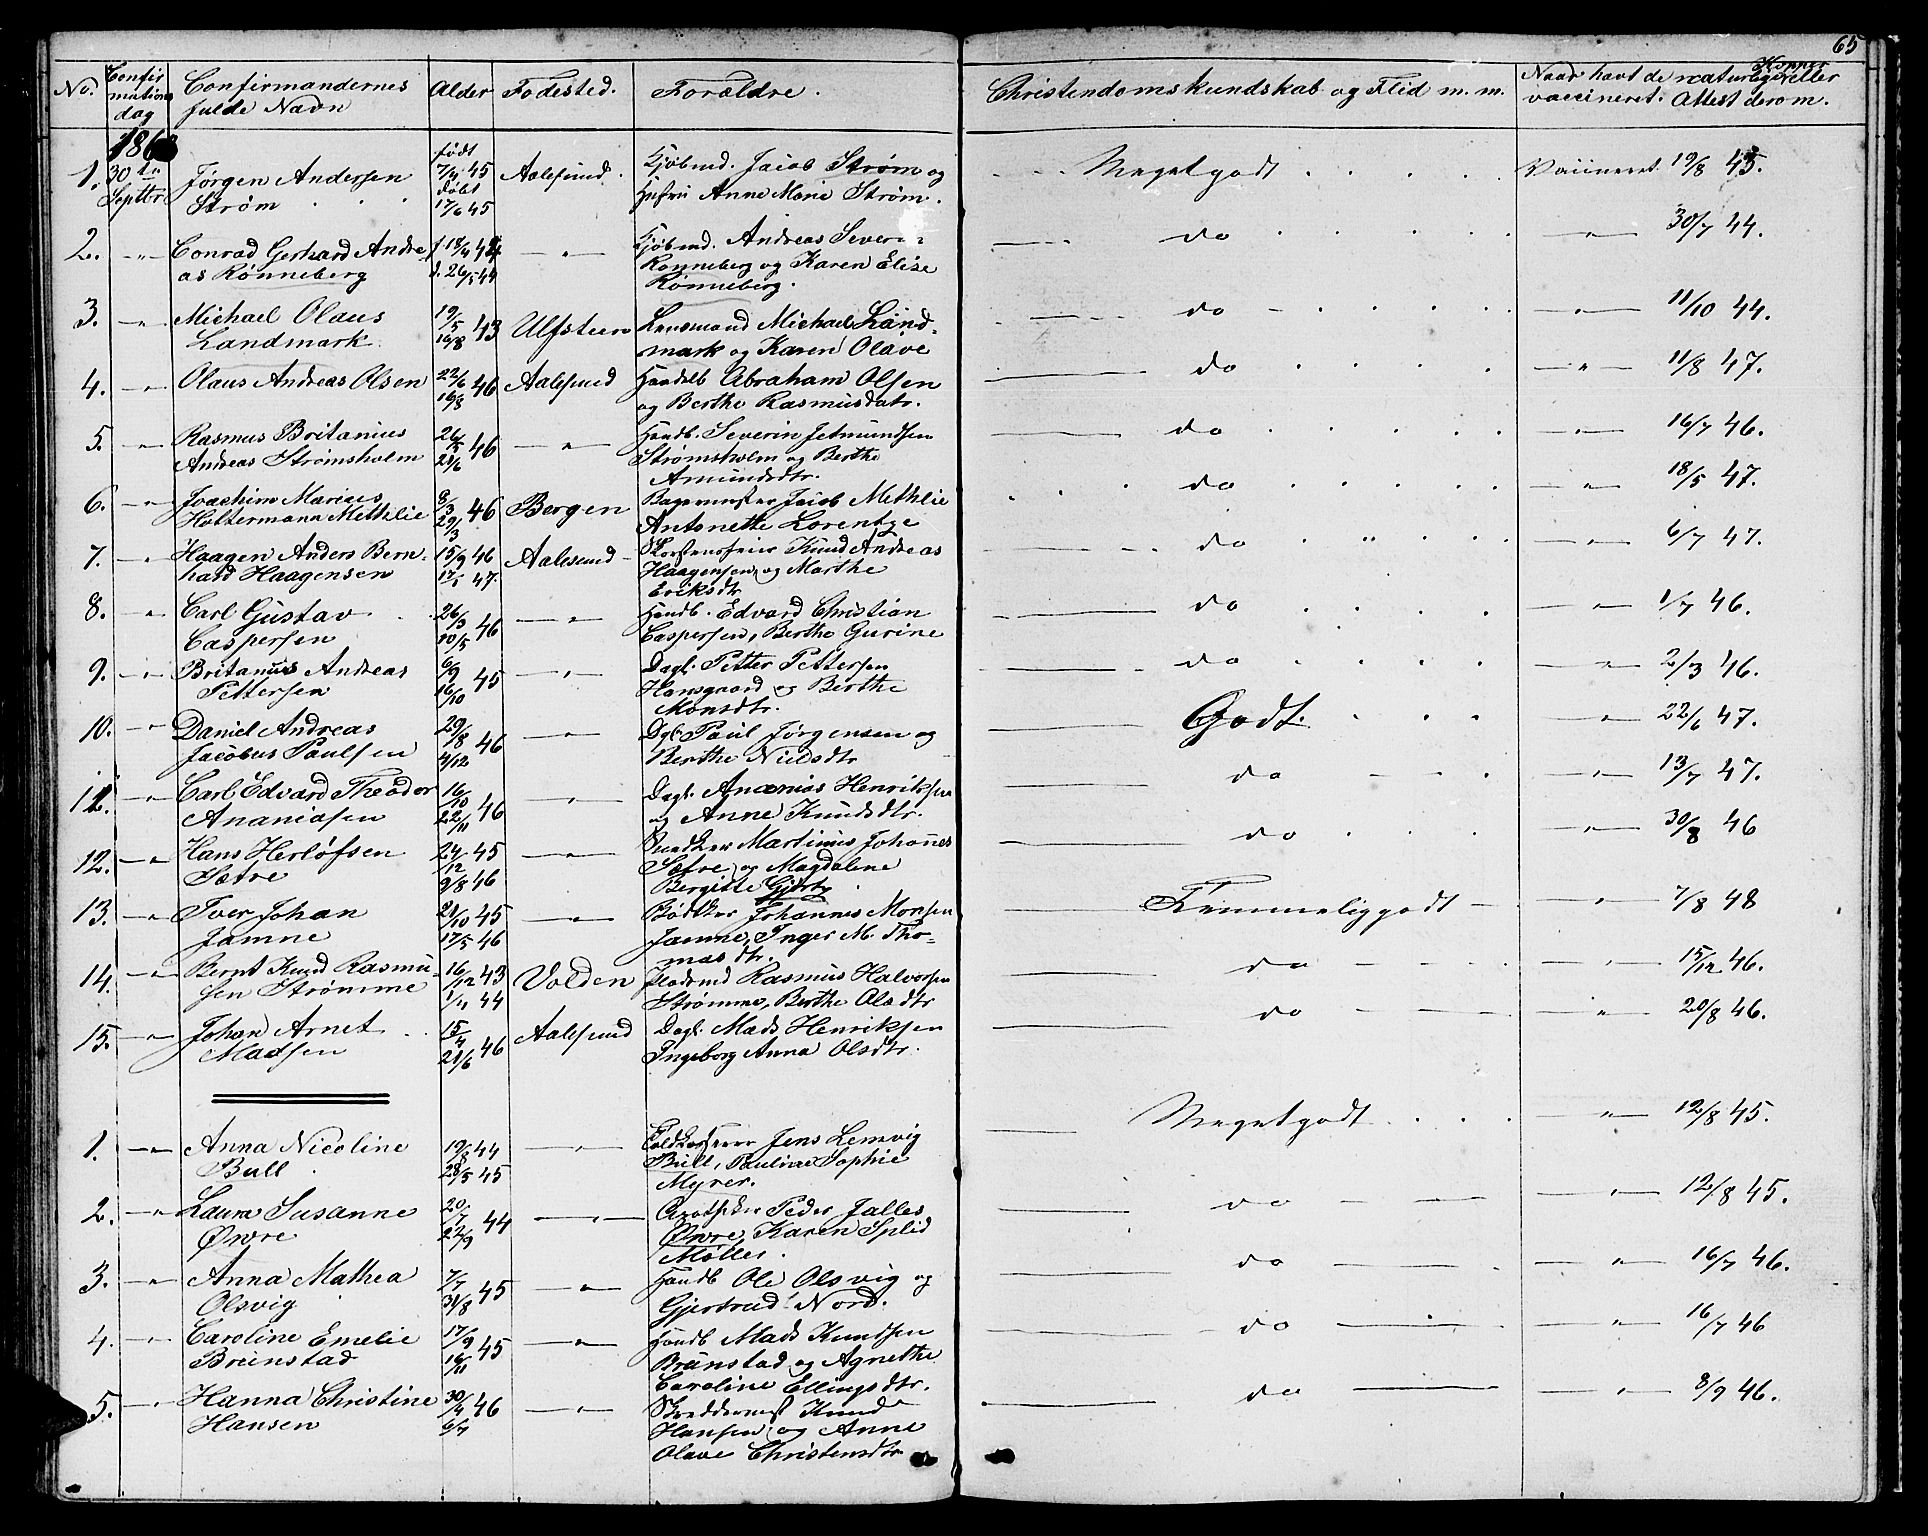 65
No. Confirmations dag Confirmandernes fulde Navn Alder Fødested. Forældre. Christendomskundskab og Flid m. m. Naar havt de naturlige Kopper eller vaccineret. Attest derom.
186
1. 30te Septbr Jørgen Andersen Strøm født 7/4 45 døbt 17/6 45 Aalesund. Kjøbmd. Jacob Strøm og Hufru Anne Marie Strøm. Meget godt Vaccineret 19/8 45.
2. -"- Conrad Gerhard Andreas Rønneberg f. 18/4 44 d. 26/5 44 -"- Kjøbmd. Andreas Severin Rønneberg og Karen Elise Rønneberg. do -"- 30/7 44.
3. -"- Michael Olaus Landmark 19/5 16/8 43 Ulfsteen Lensmand Michael Landmark og Karen Olave do -"- 11/10 44.
4. -"- Olaus Andreas Olsen 22/6 16/8 46 Aalesund Handelb Abraham Olsen og Berthe Rasmusdatr. do -"- 11/8 47.
5. -"- Rasmus Britanius Andreas Strømsholm 26/5 21/6 46 -"- Handb. Severin Jetmundsen Strømsholm og Berthe Amundsdtr. do -"- 16/7 46.
6. -"- Joachim Marius Holtermann Methlie 8/3 29/3 46 Bergen Bagermester Jacob Methlie Antonette Lorentze do -"- 18/5 47.
7. -"- Haagen Anders Bernhard Haagensen 15/9 46 17/1 47. Aalesund Skorstensfeier Knud Andreas Haagensen og Marthe Eriksdtr. do -"- 6/7 47.
8. -"- Carl Gustav Caspersen 26/3 10/5 46 -"- Handb. Edvard Christian Caspersen, Berthe Gurine do -"- 1/7 46.
9. -"- Britanus Andreas Pettersen 6/9 16/10 45 -"- Dagl. Petter Pettersen Hansgaard og Berthe Monsdtr. do -"- 2/3 46.
10. -"- Daniel Andreas Jacobus Paulsen 29/8 4/12 46 -"- Dgl. Paul Jørgensen og Berthe Nielsdtr Godt. -"- 22/6 47.
11. -"- Carl Edvard Theodor Ananiasen 16/10 22/11 46 -"- Dagl. Ananias Henriksen og Anne Knudsdtr. do -"- 13/7 47.
12. -"- Hans Herlofsen Sætre 24/12 45 9/8 46 -"- Martinus Johannes Sætre og Magdalene Bergitte do -"- 30/8 46
13. -"- Iver Johan Jamne 21/10 45 17/5 46 -"- Bødker Johannes Monsen Jamne, Inger M. Thomasdtr. Temmelig godt -"- 7/8 48
14. -"- Bernt Knud Rasmussen Strømme 16/12 43 1/1 44 Volden Rasmus Halvorsen Strømme, Berthe Olsdtr do -"- 15/12 46.
15. -"- Johan Arnet Madsen 15/4 21/6 46 Aalesund Dagl. Mads Henriksen Ingeborg Anna Olsdtr. do -"- 20/8 46.
1. -"- Anna Nicoline Bull 19/8 44 28/5 45 -"- Toldkasserer Jens Lemvig Bull, Pauline Sophie Myrer. Meget godt -"- 12/8 45.
2. -"- Laura Susanne Øwre 20/7 22/9 44 -"- Apotheker Peder Jalles Øwre, Karen Splid Møller. do -"- 12/8 45.
3. -"- Anna Mathea Olsvig 7/7 31/8 45 -"- Handb Ole Olsvig og Gjertrud Nord. do -"- 16/7 46.
4. -"- Caroline Emelie Brunstad 17/9 16/11 45 -"- Handb Mads Knudsen Brunstad og Agnethe Caroline Ellingsdtr. do -"- 16/7 46
5. -"- Hanna Christine Hansen 30/4 6/7 46 -"- Skreddermst Knud Hansen og Anne Olave Christensdtr do -"- 8/9 46.